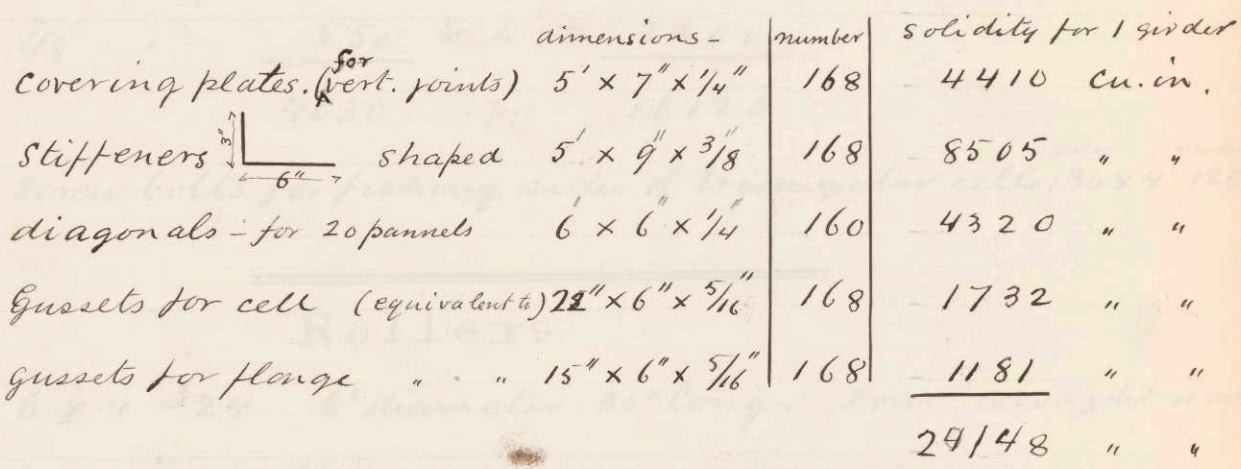 dimensions - number solidity for 1 girder
Covering plates. (for vert. joints) 5' x 7" x 1/4" 168 4410 cu. in.
Stiffeners 3" 6" shaped 5' x 9" x 3/8" 168 8505 " "
diagonals - for 20 pannels 6' x 6" x 1/4" 160 4320 " "
Gussets for cell (equivalent to) 22" x 6" x 5/16" 168 1732 " "
gussets for flange " " 15" x 6" x 5/16" 168 1181 " "
20148 " "